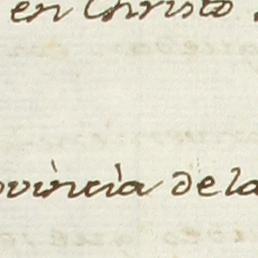 en Christo
ovincia de la